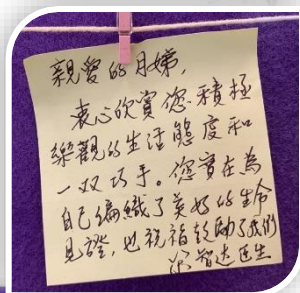 親愛的月嫦，
衷心欣賞您積極
樂觀的生活態度和
一双巧手。您實在為
自己編織了美好的生命
見證，也祝福鼓勵了我們
智達医生